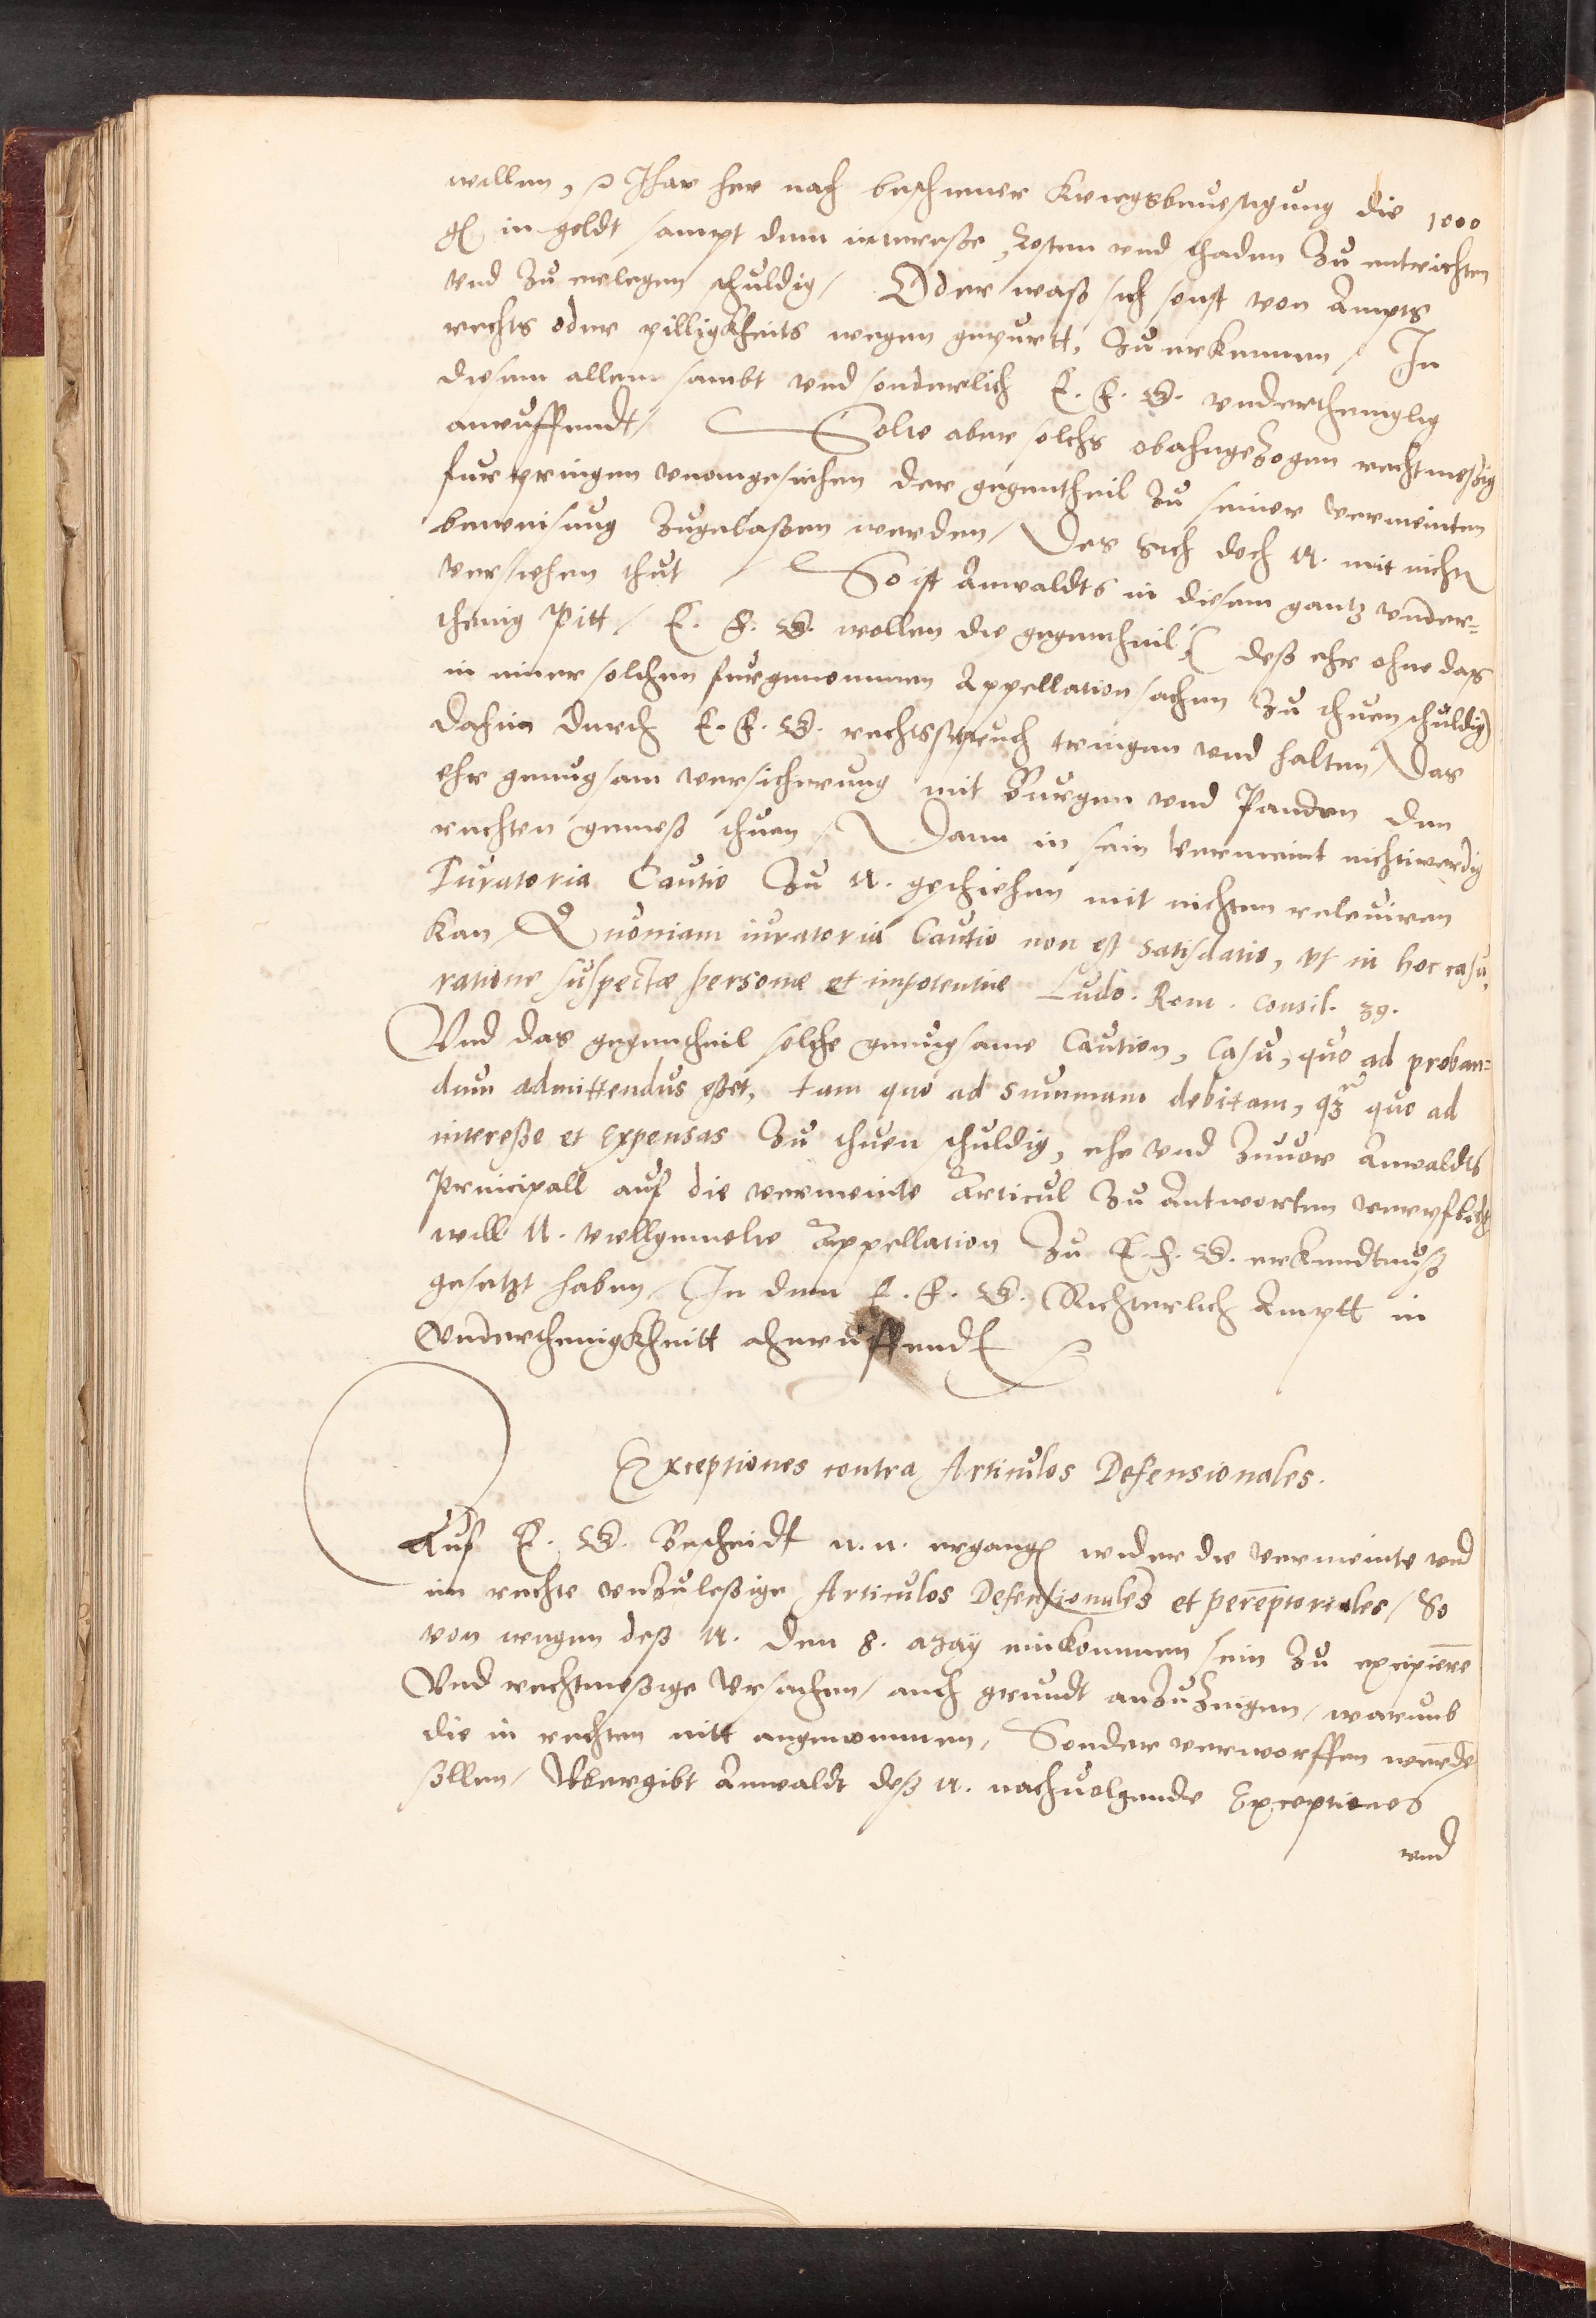 willen, Ihar her nach beschener Kriegsbeuestigung die 1000
gl in geldt sampt dem interesse, Costen vnd schaden zu entrichten
vnd zu erlegen schuldig / Oder waß sich sonst von Ampts
rechts oder pilligkheits wegen gepurtt, zu erkennen / In
diesem allem sambt vnd sonderlich E. F. G. vnderthenglig
anruffendt / Solte aber solchs obahngezogen rechtmeßig
furpringen vnangesehen der gegentheil zu seiner vermeinten
beweisung zugelaßen werden / Des sich doch N. mit nicht
versiehen thut / So ist Anwaldts in diesem gantz vnder=
thenig Pitt / E. F. G. wollen die gegentheil (deß ehr ohne das
in einer solchen furgenommen Appellation sachen zu thuen schuldig)
dahin durch E. F. G. rechtsspruch tringen vnd halten / Das
ehr genugsam versicherung mit Burgen vnd Panden den
rechten gemeß thuen / Dann in sein vermeint nichtwerdig
Iuratoria Cautio zu N. geschiehen mit nichten releuiren
kan / Quoniam iuratoria Cautio non est satisdatio, vt in hoc casu,
ratione suspectæ personæ et impotentiæ Ludo. Rom. Consil. 39.
Vnd das gegentheil solche genugsame Caution, Casu, quo ad proban=
dum admittendus eßet, tam quo ad summam debitam, qz quo ad
intereße et expensas zu thuen schuldig, ehe vnd zuuor Anwaldts
Principall auf die vermeinte Articul zu Antworten verpflicht
will N. vielgemelte Appellation zu E. F. G. erkendtnuß
gesetzt haben / In dem E. F. G. Richterlich Amptt in
Vnderthenigkheitt ahnruffendt
Exceptiones contra Articulos Defensionales.
Auf E. G. Bescheidt N. N. ergangen wider die vermeinte vnd
im rechte vnzuleßige Articulos Defensionales et perēptoriales / So
von wegen deß N. den 8. May einkommen sein zu excipierē
Vnd rechtmeßige Vrsachen / auch grundt anzuzeigen / warumb
die in rechten nitt angenommen / Sonder verworffen werdē
sollen / Vbergibt Anwaldt deß N. nachuolgende Exceptiones
vnd